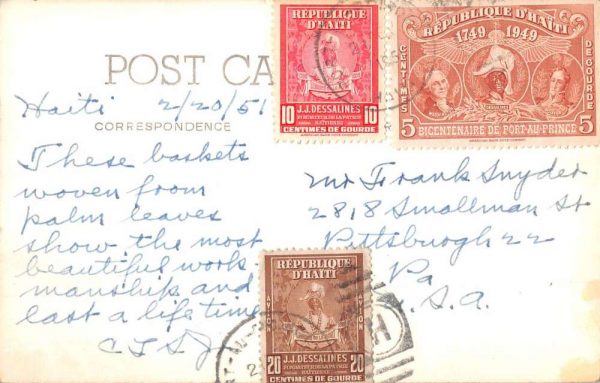 POST CA
Haiti 2/20/51
CORRESPONDENCE
These baskets
woven from
palm leaves
show the most
beautiful work
manship and
last a life time
RÉPUBLIQUE
D'HAÏTI
10 J.J. DESSALINES 10
CENTIMES DE GOURDE
RÉPUBLIQUE D'HAÏTI
1749 1949
CENTIMES
DE GOURDE
5 BICENTENAIRE DE PORT-AU-PRINCE 5
Mr Frank Snyder
2818 Smallman St
Pittsburgh 22
Pa.
U.S.A.
RÉPUBLIQUE
D'HAÏTI
AVION AVION
20 J.J. DESSALINES 20
CENTIMES DE GOURDE